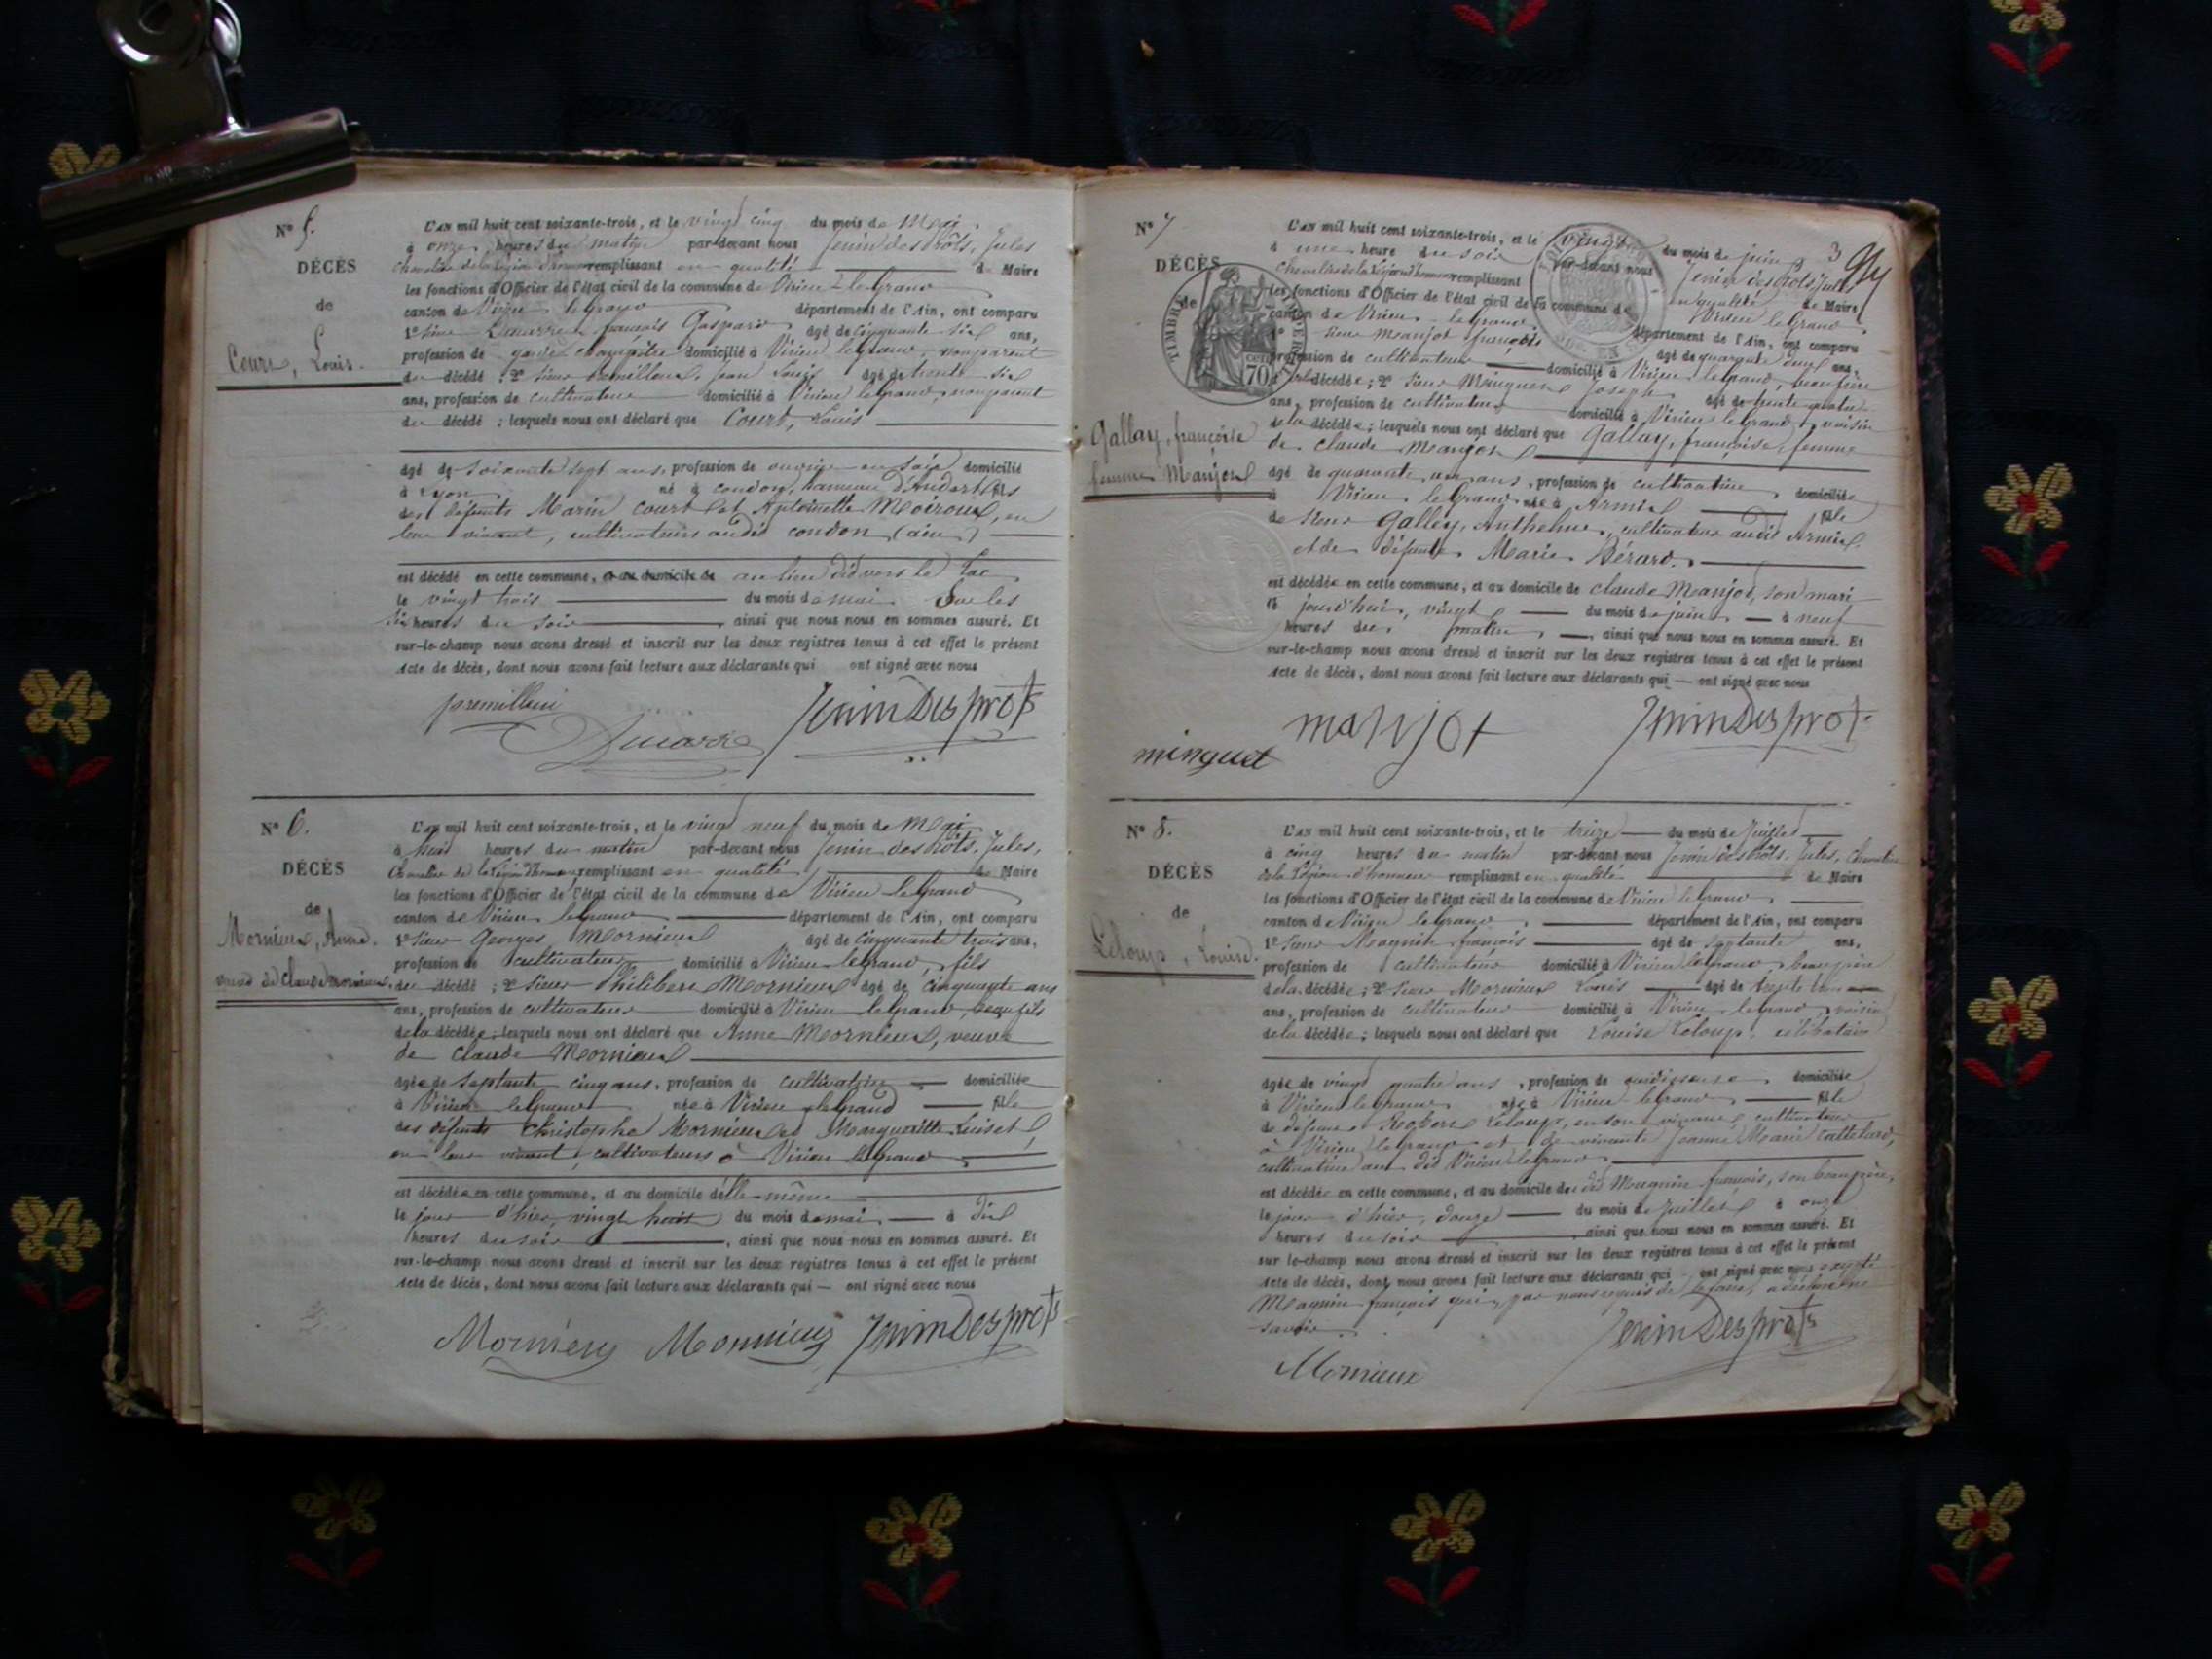 N° 5.
DÉCÈS
de
Court, Louis.
L'an mil huit cent soixante-trois, et le vingt cinq du mois de Mai
à onze heures du matin par-devant nous Jenin des prôts, Jules
chevalier de la légion d'honneur remplissant en qualité de Maire
les fonctions d'Officier de l'état civil de la commune de Virieu le grand
canton de Virieu le grand département de l'Ain, ont comparu
1° sieur françois Gaspard âgé de cinquante six ans,
profession de garde champêtre domicilié à Virieu le grand, non parent
du décédé ; 2° sieur Jean Louis âgé de trente six
ans, profession de cultivateur domicilié à Virieu le grand, non parent
du décédé ; lesquels nous ont déclaré que Court, Louis
âgé de soixante sept ans, profession de ouvrier en soie, domicilié
à Lyon né à condon, hameau d'Andert fils
des défunts Marin Court et Antoinette Moiroud, en
leur vivant, cultivateurs audit condon (ain)
est décédé en cette commune, et au domicile de au lieu dit vers le Lac
le vingt trois du mois de mai sur les
six heures du soir, ainsi que nous nous en sommes assuré. Et
sur-le-champ nous avons dressé et inscrit sur les deux registres tenus à cet effet le présent
acte de décès, dont nous avons fait lecture aux déclarants qui ont signé avec nous
premillieu JeninDesprots
Ducarre
N° 6.
DÉCÈS
de
Mornieux, Anne.
veuve de Claude Mornieux.
L'an mil huit cent soixante-trois, et le vingt neuf du mois de Mai
à huit heures du matin par-devant nous Jenin des prôts, Jules,
Chevalier de la Légion d'honneur remplissant en qualité de Maire
les fonctions d'Officier de l'état civil de la commune de Virieu le Grand
canton de Virieu le grand département de l'Ain, ont comparu
1° sieur Georges Mornieux âgé de cinquante trois ans,
profession de cultivateur domicilié à Virieu le grand, fils
du décédé ; 2° sieur Philibert Mornieux âgé de cinquante ans
ans, profession de cultivateur domicilié à Virieu le grand, beau fils
de la décédée ; lesquels nous ont déclaré que Anne Mornieux, veuve
de Claude Mornieux
âgée de septante cinq ans, profession de cultivatrice domiciliée
à Virieu le grand née à Virieu le Grand fille
des défunts Christophe Mornieux et Marguerite Luiset
en leur vivant, cultivateurs à Virieu le Grand
est décédée en cette commune, et au domicile d'elle-même
le jour d'hier, vingt huit du mois de mai à dix
heures du soir, ainsi que nous nous en sommes assuré. Et
sur-le-champ nous avons dressé et inscrit sur les deux registres tenus à cet effet le présent
acte de décès, dont nous avons fait lecture aux déclarants qui — ont signé avec nous
Mornieux Mornieux JeninDesprots
N° 7
DÉCÈS
de
Gallay, françoise
femme Manjot
TIMBRE
70
3
L'an mil huit cent soixante-trois, et le vingt du mois de juin
à une heure du soir par-devant nous Jenin des Prôts Jules
chevalier de la Légion d'honneur remplissant en qualité de Maire
les fonctions d'Officier de l'état civil de la commune de Virieu le Grand
canton de Virieu le grand département de l'Ain, ont comparu
1° sieur Manjot françois âgé de quarante deux ans,
profession de cultivateur domicilié à Virieu le grand, beau frère
de la décédée ; 2° sieur Minguet Joseph âgé de trente quatre
ans, profession de cultivateur domicilié à Virieu le grand, voisin
de la décédée ; lesquels nous ont déclaré que Gallay, françoise, femme
de claude Manjot
âgé de quarante un ans, profession de cultivatrice, domiciliée
à Virieu le Grand née à Armix fille
de sieur Galley, Anthelme, cultivateur audit Armix
et de défunte Marie Bérard.
est décédée en cette commune, et au domicile de claude Manjot, son mari
le jourd'hui, vingt du mois de juin à neuf
heures du matin, ainsi que nous nous en sommes assuré. Et
sur-le-champ nous avons dressé et inscrit sur les deux registres tenus à cet effet le présent
acte de décès, dont nous avons fait lecture aux déclarants qui — ont signé avec nous
manjot JeninDesprots
minguet
N° 8.
DÉCÈS
de
Leloup, Louise.
L'an mil huit cent soixante-trois, et le treize du mois de Juillet
à cinq heures du matin par-devant nous Jenin des prôts, Jules, Chevalier
de la Légion d'honneur remplissant en qualité de Maire
les fonctions d'Officier de l'état civil de la commune de Virieu le grand,
canton de Virieu le grand département de l'Ain, ont comparu
1° sieur Maguin françois âgé de septante ans,
profession de cultivateur domicilié à Virieu le grand beau père
de la décédée ; 2° sieur Mornieux Louis âgé de trente
ans, profession de cultivateur domicilié à Virieu le grand voisin
de la décédée ; lesquels nous ont déclaré que Louise Leloup, célibataire
âgée de vingt quatre ans, profession de ourdisseuse, domiciliée
à Virieu le grand née à Virieu le grand fille
de défunt Robert Leloup, en son vivant cultivateur
à Virieu le grand et de vivante Jeanne Marie
cultivatrice au dit Virieu le grand
est décédée en cette commune, et au domicile du dit Maguin françois, son beau père,
le jour d'hier, douze du mois de Juillet à onze
heures du soir, ainsi que nous nous en sommes assuré. Et
sur le-champ nous avons dressé et inscrit sur les deux registres tenus à cet effet le présent
acte de décès, dont nous avons fait lecture aux déclarants qui ont signé avec nous excepté
Maguin françois qui, par nous requis de le faire, a déclaré ne
savoir.
JeninDesprots
Mornieux